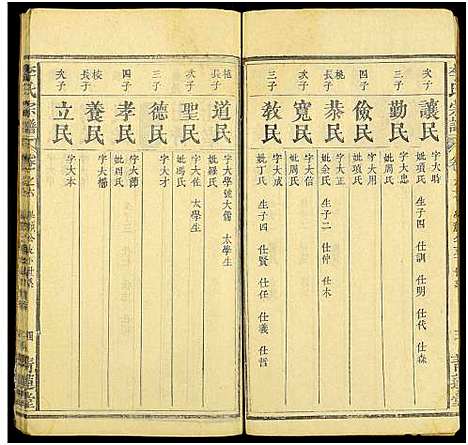 次子
讓民
字大時
妣項氏
生子四 仕訓 仕明 仕代 仕森
三子
勤民
字大忠
四子
儉民
字大用
妣項氏
桃長子
恭民
字大正
妣余氏
生子二 仕仲 仕木
次子
寬民
字大信
妣周氏
三子
教民
字大成
妣丁氏
生子四 仕賢 仕任 仕義 仕哲
桃長子
道民
字大學號大儒 太學生
妣羅氏
次子
聖民
字大任 太學生
三子
德民
字大才
四子
孝民
妣周氏
校長子
養民
字大備
次子
立民
字大本
李氏宗譜
青蓮堂